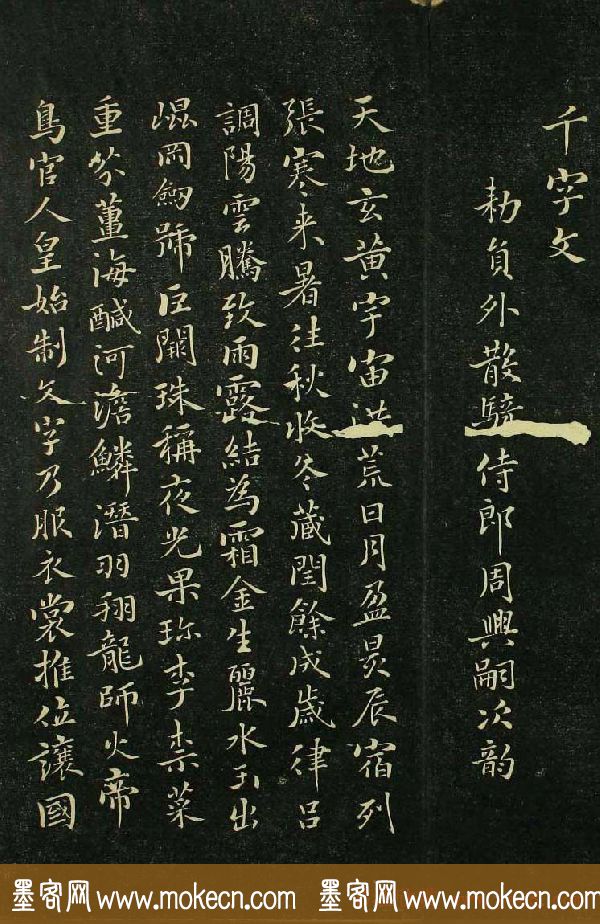 千字文
勑員外散騎侍郎周興嗣次韵
天地玄黃宇宙洪荒日月盈昃辰宿列
張寒来暑往秋收冬藏閏餘成歲律吕
調陽雲騰致雨露結為霜金生麗水玉出
崐岡劒號巨闕珠稱夜光果珎李柰菜
重芥薑海醎河澹鱗潛羽翔龍師火帝
鳥官人皇始制文字乃服衣裳推位讓國
墨客网 www.mokecn.com 墨客网 www.mokecn.com